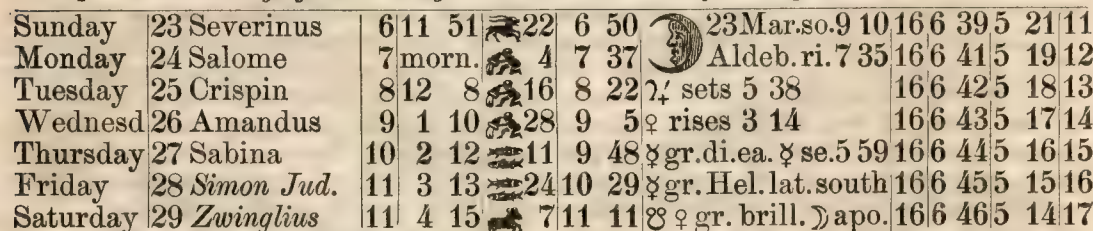 Sunday 23 Severinus 6 11 51 22 6 50 23 Mar. so. 9 10 16 6 39 5 21 11
Monday 24 Salome 7 morn. 4 7 37 Aldeb. ri. 7 35 16 6 41 5 19 12
Tuesday 25 Crispin 8 12 8 16 8 22 ♃ sets 5 38 16 6 42 5 18 13
Wednesd 26 Amandus 9 1 10 28 9 5 ♀ rises 3 14 16 6 43 5 17 14
Thursday 27 Sabina 10 2 12 11 9 48 ☿ gr. di. ea. ☿ se. 5 59 16 6 44 5 16 15
Friday 28 Simon Jud. 11 3 13 24 10 29 ☿ gr. Hel. lat. south 16 6 45 5 15 16
Saturday 29 Zwinglius 11 4 15 7 11 11 ☋ ♀ gr. brill. ☽ apo. 16 6 46 5 14 17